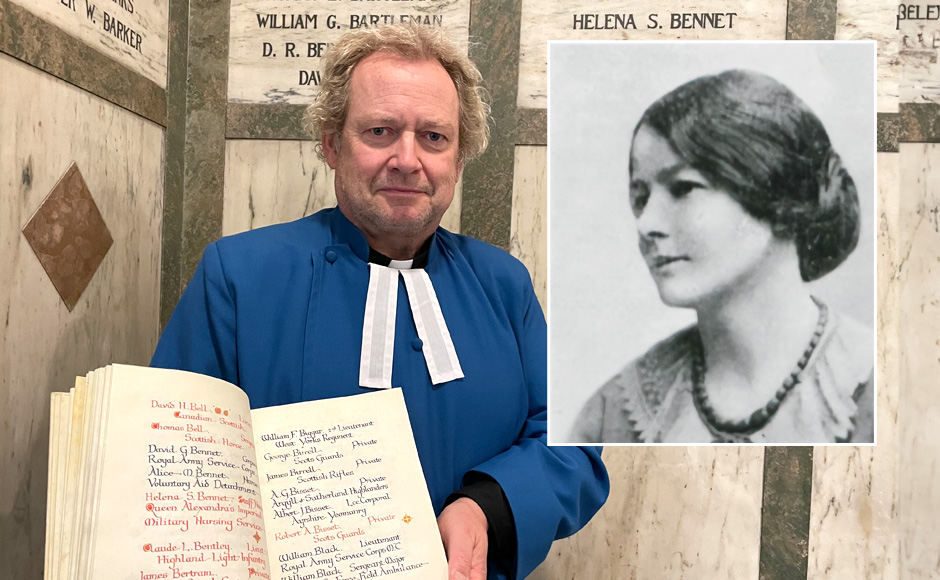 ER W. BARKER
WILLIAM G. BARTLEMAN
D. R. BE
DAV
HELENA S. BENNET
BELE
David H. Bell
Canadian Scottish
Thomas Bell
Scottish Horse
David G. Bennet Corp
Royal Army Service Corps
Alice M. Bennet
Voluntary Aid Detachment
Helena S. Bennet Staff
Queen Alexandra's Imperial
Military Nursing Service
Claude L. Bentley Lieut
Highland Light Infantry
James Bertram Private
William F. Biggar 2nd Lieutenant
West Yorks Regiment
George Birrell Private
Scots Guards
James Birrell Private
Scottish Rifles
A. G. Bisset Private
Argyll & Sutherland Highlanders
Albert J. Bisset Lce Corporal
Ayrshire Yeomanry
Robert A. Bisset Private
Scots Guards
William Black Lieutenant
Royal Army Service Corps M.C.
William Black Sergeant Major
Field Ambulance